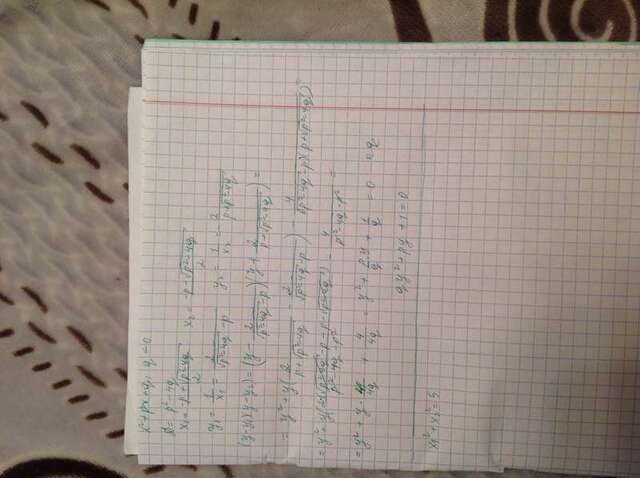 x²+px+q, q≠0
D= p²-4q
x₁= (-p+√(p²-4q))/2 x₂= (-p-√(p²-4q))/2
y₁= 1/x₁ = 2/(√(p²-4q)-p) y₂= 1/x₂ = -2/(p+√(p²-4q))
(y-y₁)(y-y₂)=(y - 2/(√(p²-4q)-p))(y + 2/(p+√(p²-4q))) =
= y²+y(2/(p+√(p²-4q)) - 2/(√(p²-4q)-p)) - 4/((√(p²-4q)-p)(p+√(p²-4q))) =
- 4/(p²-4q-p²) =
+ 4/4q = y²+ p/q y + 1/q = 0
qy²+py+1=0
x₁²+x₂²=5